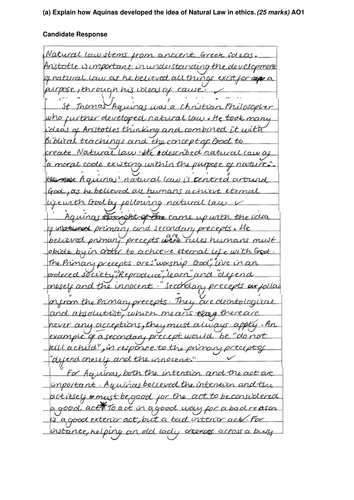 (a) Explain how Aquinas developed the idea of Natural Law in ethics. (25 marks) AO1
Candidate Response
Natural law stems from ancient Greek ideas.
Aristotle is important in understanding the development
of natural law as he believed all things exist for a
purpose, through his ideas of cause.
St Thomas Aquinas was a Christian Philosopher
who further developed natural law. He took many
ideas of Aristotles thinking and combined it with
Biblical teachings and the concept of God to
create Natural law. He described natural law as
'a moral code existing within the purpose of nature'.
Aquinas' natural law is centred around
God, as he believed all humans achieve eternal
life with God by following natural law. ✓
Aquinas came up with the idea
of primary and secondary precepts. He
believed primary precepts are rules humans must
abide by in order to achieve eternal life with God.
The Primary precepts are: "worship God", "live in an
ordered society", "Reproduce", "learn" and "defend
onesely and the innocent." Secondary precepts follow
on from the Primary precepts. They are deontological
and absolutist, which means there are
never any acceptions, they must always apply. An
example of a secondary precept would be "do not
kill a child", in response to the primary precept of
"defend onesely and the innocent." ✓
For Aquinas, both the intention and the act are
important. Aquinas believed the intention and the
act itsely must be good for the act to be considered
a good act. To act in a good way for a bad reason
is a good exterior act, but a bad interior act. For
instance, helping an old lady across a busy